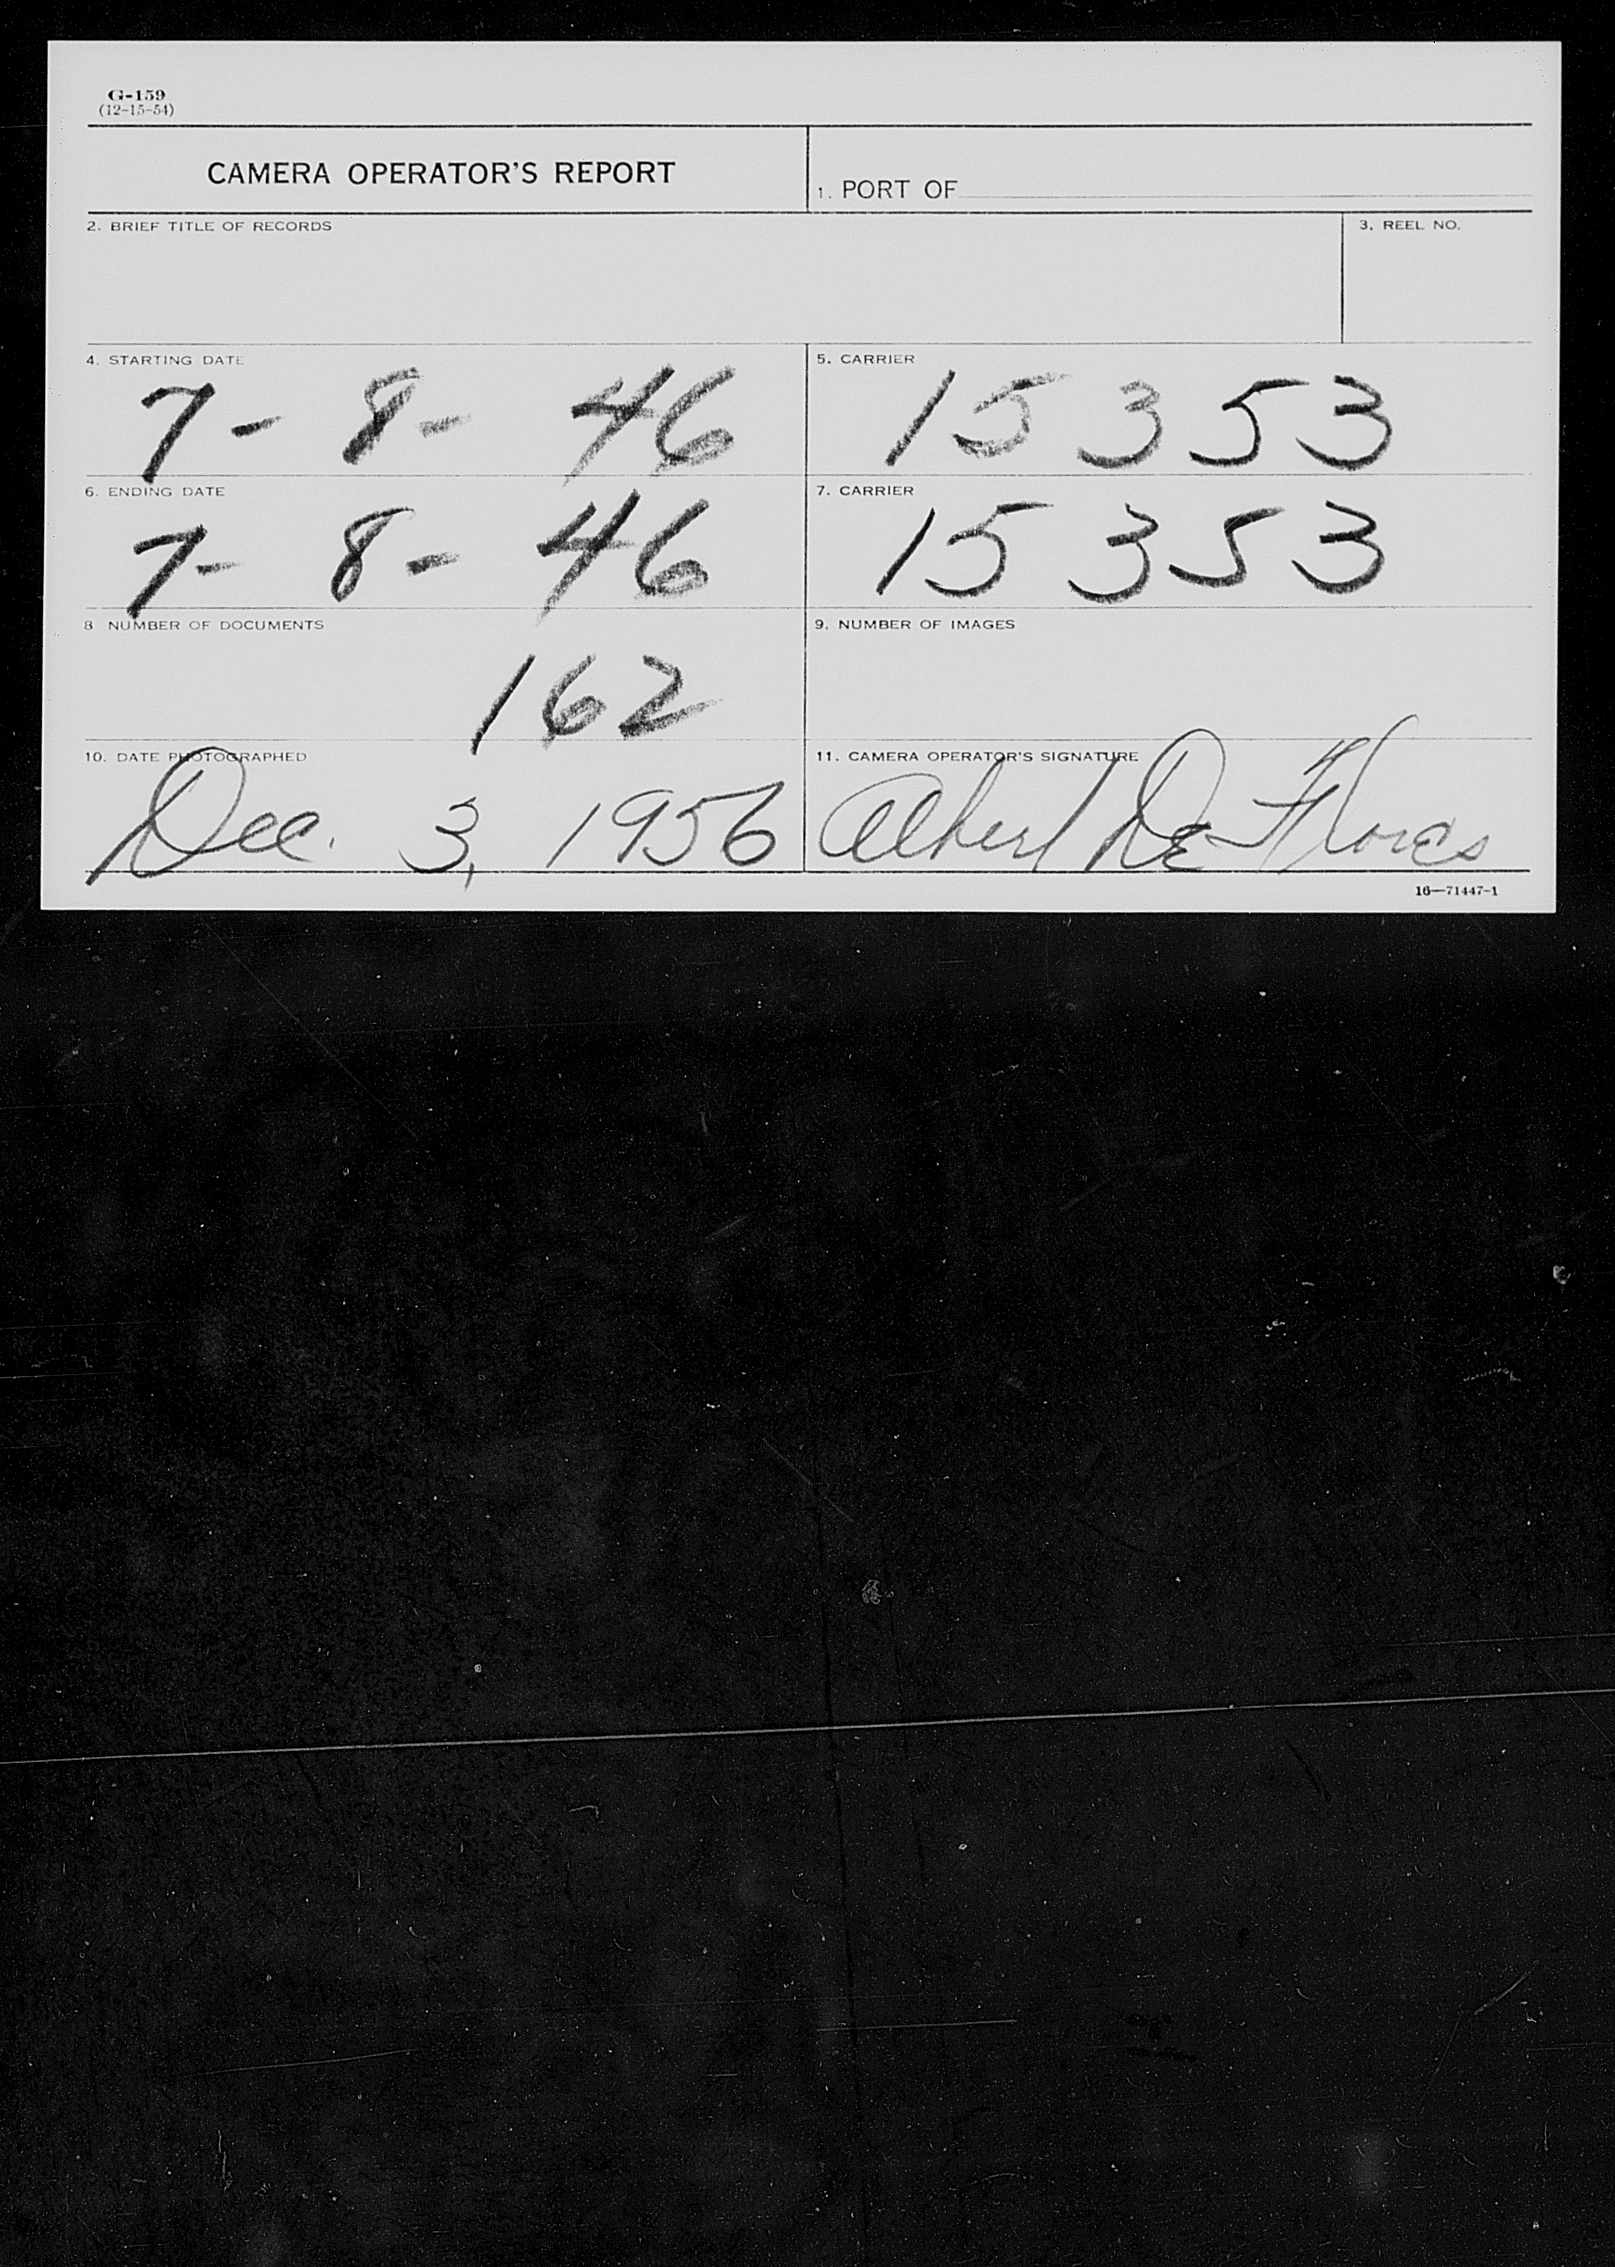 G-159
(12-15-54)
CAMERA OPERATOR'S REPORT
1. PORT OF
2. BRIEF TITLE OF RECORDS
3. REEL NO.
4. STARTING DATE
7-8-46
5. CARRIER
15353
6. ENDING DATE
7-8-46
7. CARRIER
15353
8 NUMBER OF DOCUMENTS
162
9. NUMBER OF IMAGES
10. DATE PHOTOGRAPHED
Dec. 3, 1956
11. CAMERA OPERATOR'S SIGNATURE
Albert De Flores
16—71447-1